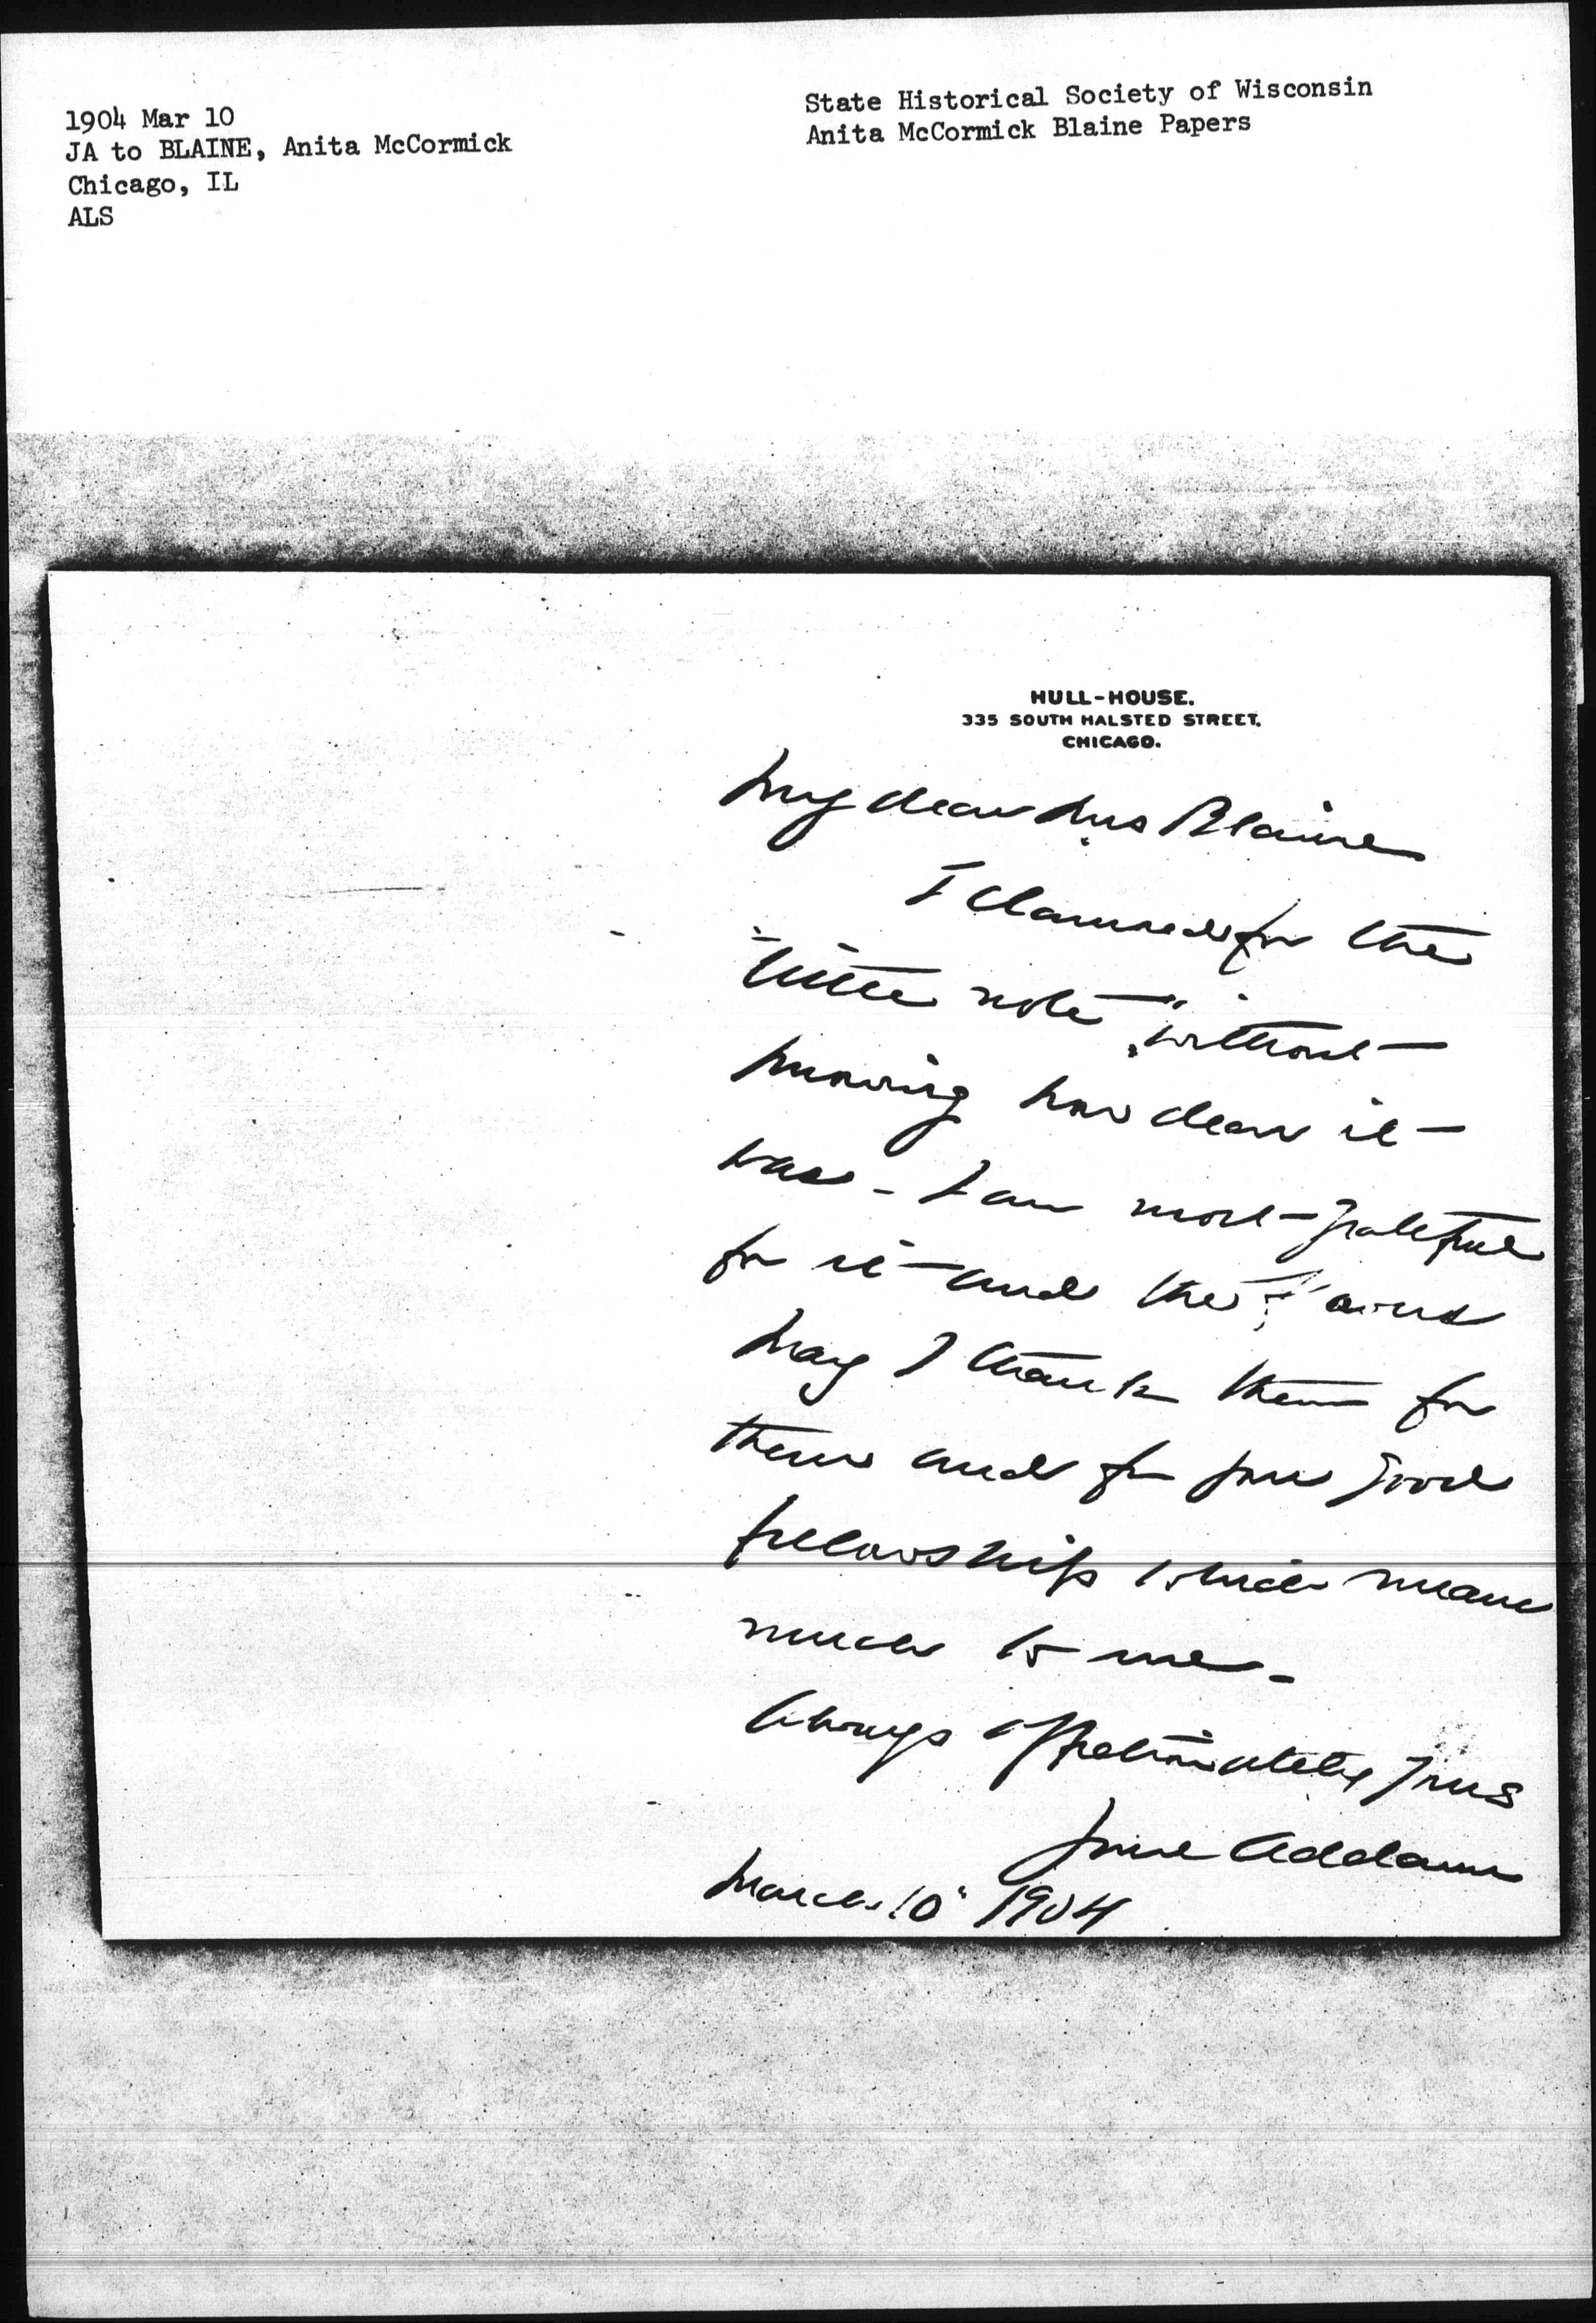 1904 Mar 10
JA to BLAINE, Anita McCormick
Chicago, IL
ALS
State Historical Society of Wisconsin
Anita McCormick Blaine Papers
HULL-HOUSE.
335 SOUTH HALSTED STREET.
CHICAGO.
My dear Mrs Blaine
I clamored for the
"little note" without
knowing how dear it
was - I am most grateful
for it and the
May I thank them for
them and for your good
fellowship which means
much to me -
Always affectionately yours
Jane Addams
March 10" 1904